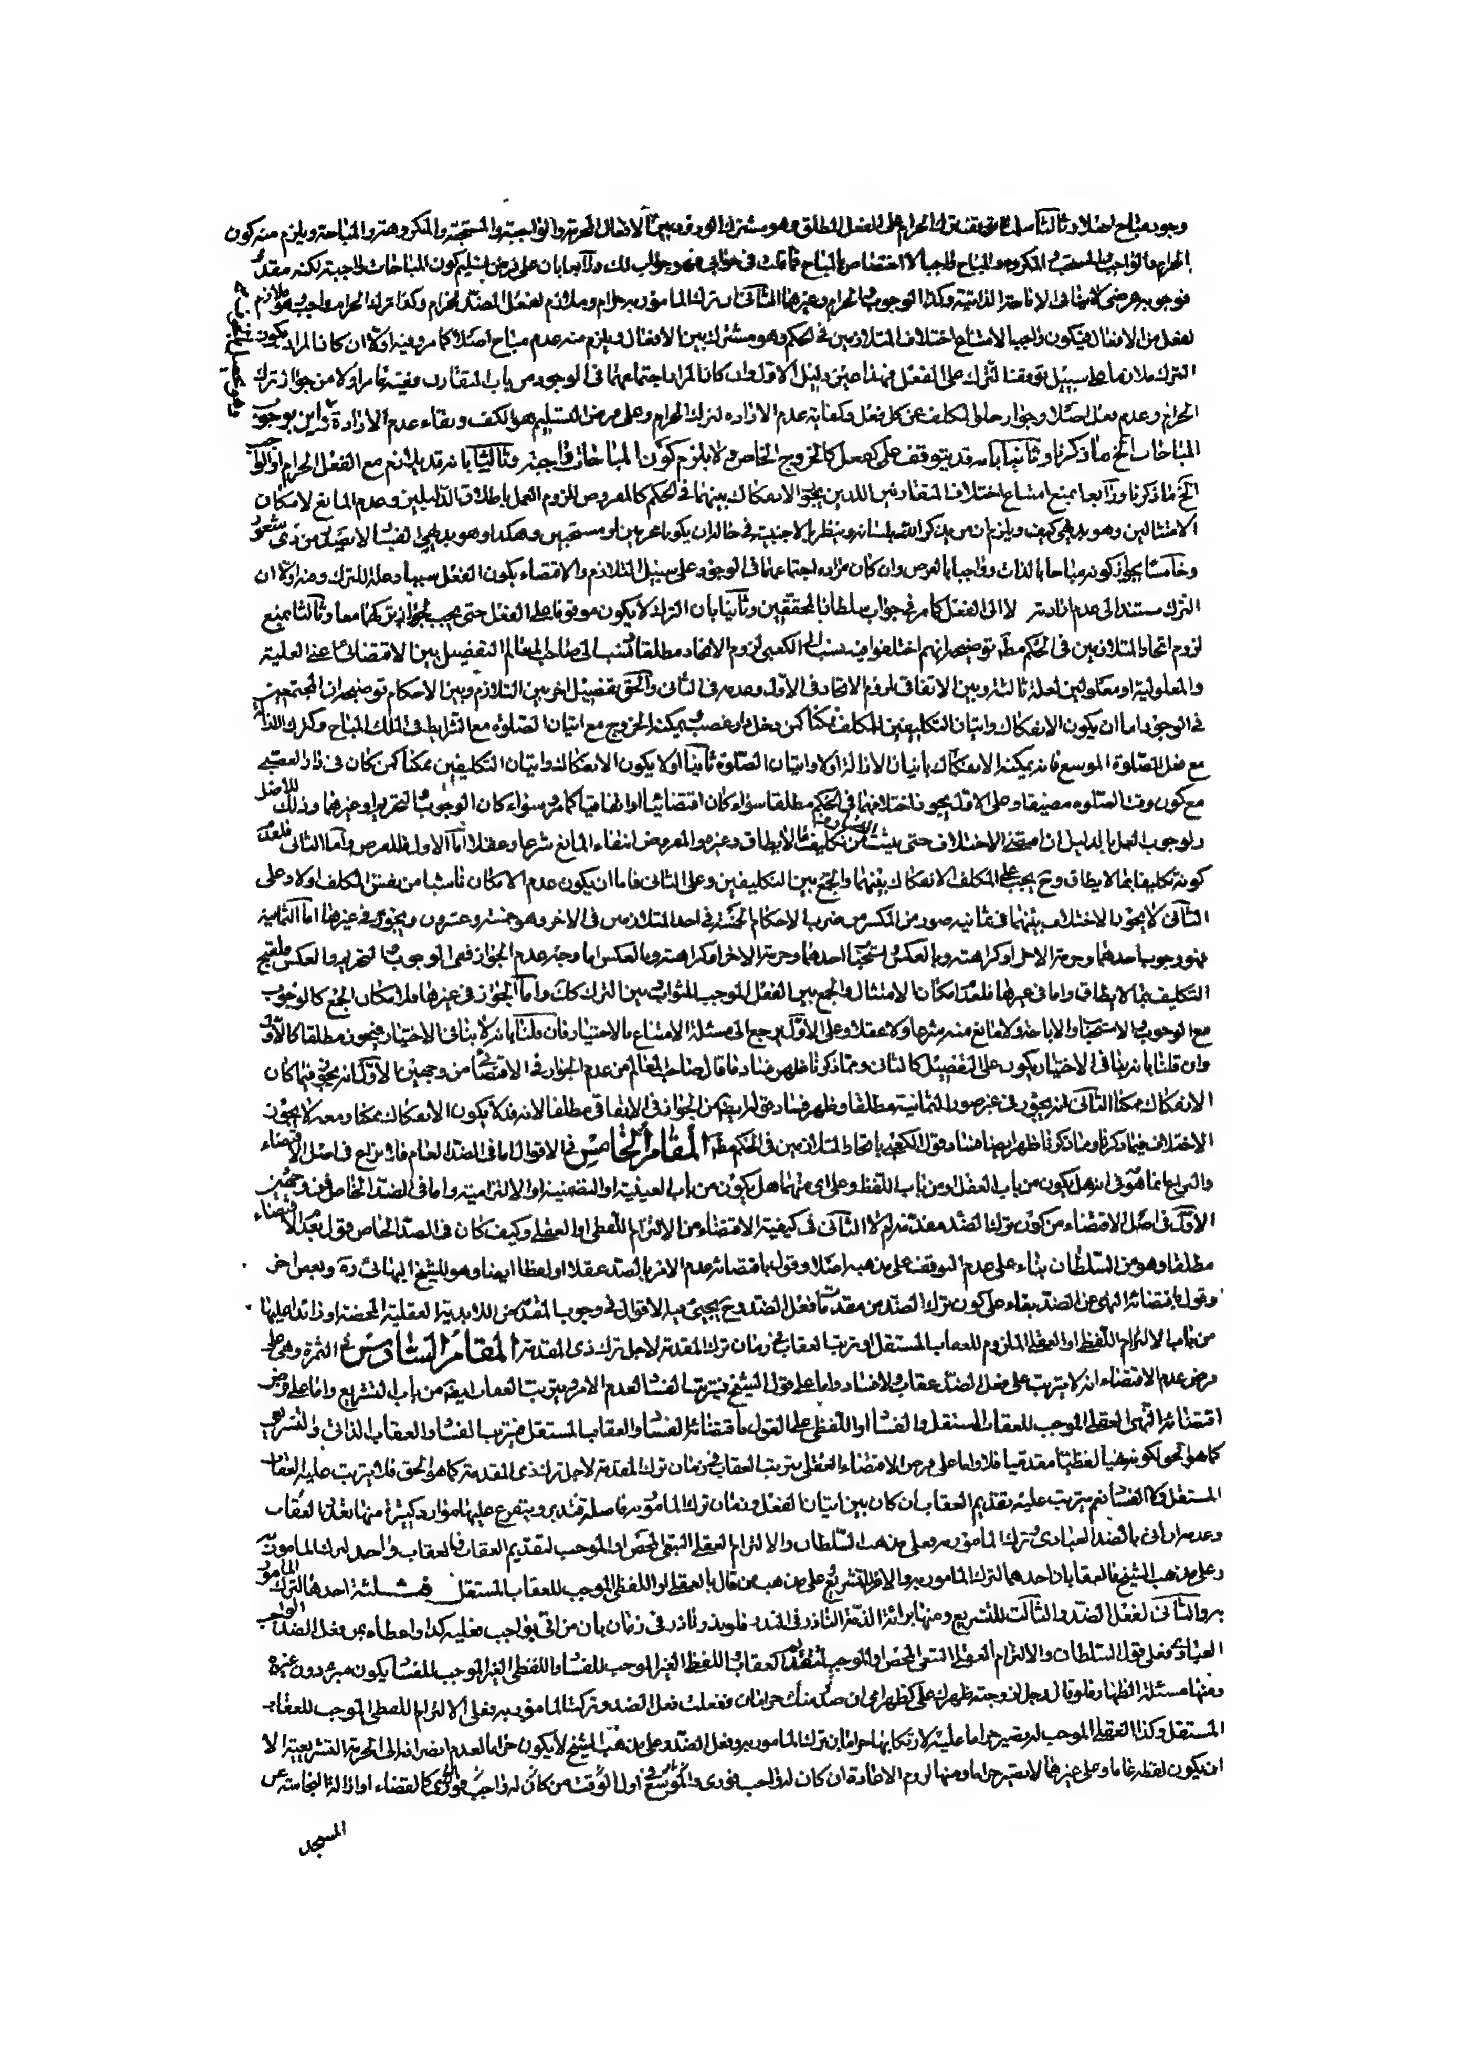 وجود مباح اصلا وثالثا سلمنا توقف ترك الحرام على الفعل المطلق وهو مشترك الورود بين الافعال المحرمة والواجبة والمستحبة والمكروهة والمباحة ويلزم منه كون
الحرام والواجب والمستحب والمكروه والمباح واجبا لا اختصاص بالمباح فما قلت في جوابه فهو جواب لك ورابعا بان على فرض تسليم كون المباحات واجبة لكنه مقدمة
فوجوبه عرضي لا ينافي الاباحة الذاتية وكذا الوجوب والحرام وغيرهما الثاني ان ترك المامور به حرام وملازم لفعل الضد فيحرم وكذا ترك الحرام واجب وهو ملازم
لفعل من الافعال فيكون واجبا لامتناع اختلاف المتلازمين في الحكم وهو مشترك بين الافعال ويلزم منه عدم مباح اصلا كما مر وفيه اولا ان كان المراد بكون
الترك ملازما على سبيل توقف الترك على الفعل فهذا عين دليل الاول وان كان المراد اجتماعهما في الوجود من باب التقارن ففيه ما مر اولا من جواز ترك
الحرام وعدم فعل اصلا وجواز خلو المكلف عن كل فعل وكفاية عدم الارادة لترك الحرام وعلى فرض التسليم هو الكف وبقاء عدم الارادة فاين بوجوب
المباحات الخ ما ذكرنا وثانيا بانه قد يتوقف على فعل كالخروج الخاص ولا يلزم كون المباحات واجبة وثالثا بانه قد يلتزم مع الفعل الحرام او الواجب
الخ ما ذكرنا ورابعا بمنع امتناع اختلاف المتقارنين اللذين يجوز الانفكاك بينهما في الحكم كالمفروض للزوم العمل باطلاق الدليلين وعدم المانع لامكان
الامتثالين وهو بديهي كيف ويلزم ان من يذكر الله بلسانه وينظر الى الاجنبية في حالة ان يكونا محرمين او مستحبين وهكذا وهو بديهي الفساد لا يصدر من ذي شعور
وخامسا يجوز كونه مباحا بالذات وواجبا بالعرض وان كان مراده اجتماعهما في الوجود على سبيل التلازم والاقتضاء بكون الفعل سببا وعلة للترك وفيه اولا ان
الترك مستند الى عدم ارادته لا الى الفعل كما مر في جواب سلطان المحققين وثانيا بان الترك لا يكون موقوفا على الفعل حتى يجب لجواز تركهما معا وثالثا بمنع
لزوم اتحاد المتلازمين في الحكم مطلقا توضيحه انهم اختلفوا فيه نسب الى الكعبي لزوم الاتحاد مطلقا ونسب الى صاحب المعالم التفصيل بين الاقتضائي اعني العلية
والمعلولية او معلولين لعلة ثالثة وبين الاتفاق لزوم الاتحاد في الاول وعدمه في الثاني والحق تفصيل اخر بين التلازم وبين الاحكام توضيحه ان المجتمعين
في الوجود اما ان يكون الانفكاك واتيان التكليفين للمكلف ممكنا كمن دخل دار غصب ويمكنه الخروج مع اتيان الصلوة مع الشرايط في الملك المباح وكترك الازالة
مع فعل الصلوة الموسع فانه يمكنه الانفكاك باتيان الازالة اولا واتيان الصلوة ثانيا او لا يكون الانفكاك واتيان التكليفين ممكنا كمن كان في دار الغصب
مع كون وقت الصلوة مضيقا وعلى الاول يجوز اختلافهما في الحكم مطلقا سواء كان اقتضائيا او اتفاقيا كما مر وسواء كان الوجوب والتحريم او غيرهما وذلك للاصل
ولوجوب العمل بالدليل ان اقتضى الاختلاف حتى يثبت من تكليف ما لا يطاق وغيره والمفروض انتفاء المانع شرعا وعقلا اما الاول فللفرض واما الثاني فلعدم
كونه تكليفا بما لا يطاق وح يجب على المكلف الانفكاك بينهما والجمع بين التكليفين وعلى الثاني فاما ان يكون عدم الامكان ناشيا من نفس المكلف اولا وعلى
الثاني لا يجوز الاختلاف بينهما في ثمانية صور من المكسر من ضرب الاحكام الخمسة في احد المتلازمين في الاخر وهو خمسة وعشرون ويجوز في غيرها اما الثمانية
فهو وجوب احدهما وحرمة الاخر او كراهته وبالعكس واستحباب احدهما وحرمة الاخر او كراهته وبالعكس اما وجه عدم الجواز ففي الوجوب والتحريم والعكس فلقبح
التكليف بما لا يطاق واما في غيرها فلعدم امكان الامتثال والجمع بين الفعل الموجب للثواب وبين الترك كك واما الجواز في غيرها فلامكان الجمع كالوجوب
مع الوجوب والاستحباب والاباحة ولا مانع منه شرعا ولا عقلا وعلى الاول يرجع الى مسئلة الامتناع بالاختيار فان قلنا بانه لا ينافي الاختيار فيجوز مطلقا كالاول
وان قلنا بانه ينافي الاختيار يكون على التفصيل كالثاني ومما ذكرنا ظهر فساد ما قال صاحب المعالم من عدم الجواز في الاقتضائي من وجهين الاول انه يجوز فيما كان
الانفكاك ممكنا الثاني انه يجوز في غير صور الثمانية مطلقا وظهر فساد قوله ايضا من الجواز في الاتفاقي مطلقا لانه قد لا يكون الانفكاك ممكنا ومعه لا يجوز
الاختلاف فيما ذكرنا ومما ذكرنا ظهر ايضا فساد قول الكعبي باتحاد المتلازمين في الحكم مطلقا المقام الخامس في الاقوال اما في الضد العام فلا نزاع في اصل الاقتضاء
والنزاع انما هو في انه هل يكون من باب العقل او من باب اللفظ وعلى اي منهما هل يكون من باب العينية او التضمنية او الالتزامية واما في الضد الخاص فنحو بحثين
الاول في اصل الاقتضاء من كون ترك الضد مقدمة ام لا الثاني في كيفية الاقتضاء من الالتزام اللفظي او العقلي وكيف كان في الضد الخاص قول بعدم الاقتضاء
مطلقا وهو من السلطان بناء على عدم التوقف على مذهبه اصلا وقول باقتضائه عدم الامر بالضد عقلا او لفظا ايضا وهو للشيخ البهائي ره وبعض اخر
وقول باقتضائه النهي عن الضد بناء على كون ترك الضد من مقدمات فعل الضد وح يجيئ فيه الاقوال في وجوب المقدمة من اللابدية العقلية المحضة او زائدا عليها
من باب الالتزام اللفظي او العقلي الملزوم للعقاب المستقل او ترتب العقاب في زمان ترك المقدمة لاجل ترك ذي المقدمة المقام السادس في الثمرة وهي على
فرض عدم الاقتضاء انه لا يترتب على فعل الضد عقاب ولا فساد واما على قول الشيخ فيترتب الفساد لعدم الامر ويترتب العقاب ايضا من باب التشريع واما على فرض
اقتضائه النهي العقلي الموجب للعقاب المستقل والفساد او اللفظي على القول باقتضائه الفساد والعقاب المستقل فيترتب الفساد والعقاب الذاتي والتشريعي
كما هو الحق لكونه نهيا لفظيا مقدميا فلا واما على فرض الاقتضاء العقلي بترتب العقاب في زمان ترك المقدمة لاجل ترك ذي المقدمة كما هو الحق فلا يترتب عليه العقاب
المستقل ولا الفساد نعم يترتب عليه تقديم العقاب ان كان بين اتيان الفعل وزمان ترك المامور به فاصلة فتدبر ويتفرع عليها موارد كثيرة منها تعدد العقاب
وعدمه ان اتى بالضد العبادي وترك المامور به فعلى مذهب السلطان والالتزام العقلي التبعي المحض او الموجب لتقديم العقاب فالعقاب واحد لترك المامور به
وعلى مذهب الشيخ فالعقابان احدهما لترك المامور به والاخر للتشريع وعلى مذهب من قال بالعقلي او اللفظي الموجب للعقاب المستقل فثلثة احدها لترك المامور
به والثاني لفعل الضد والثالث للتشريع ومنها برائة الذمة الناذر في النذر فلو نذر ناذر في زمان بان من اتى بواجب فعليه كذا واعطاه بمن فعل الضد الواجب
العبادي فعلى قول السلطان والالتزام العقلي التبعي المحض او الموجب لتقدم العقاب واللفظي الغير الموجب للفساد واللفظي الغير الموجب للفساد يكون مبرء دون غيره
ومنها مسئلة الظهار فلو قال رجل لزوجته ظهرك علي كظهر امي ان صدر منك حرامان ففعلت فعل الضد وتركت المامور به فعلى الالتزام اللفظي الموجب للعقاب
المستقل وكذا العقلي الموجب له يصير حراما عليه لارتكابها حرامان ترك المامور به وفعل الضد وعلى مذهب الشيخ لا يكون حراما لعدم انصرافه الى الحرمة التشريعية الا
ان يكون لفظه عاما وعلى غيرها لا يصير حراما ومنها لزوم الاعادة ان كان له واجب فوري وموسع في اول الوقت من كان له واجب فوري كالقضاء او ازالة النجاسة عن
المسجد